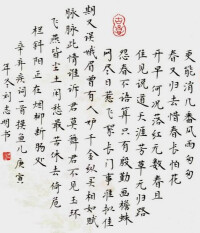 更能消几番风雨匆匆
春又归去惜春长怕花
开早何况落红无数春且
住见说道天涯芳草无归路
怨春不语算只有殷勤画檐蛛
网尽日惹飞絮长门事准拟佳
期又误蛾眉曾有人妒千金纵买相如赋
脉脉此情谁诉君莫舞君不见玉环
飞燕皆尘土闲愁最苦休去倚危
栏斜阳正在烟柳断肠处
辛弃疾词一首摸鱼儿庚寅
年冬刘志明书